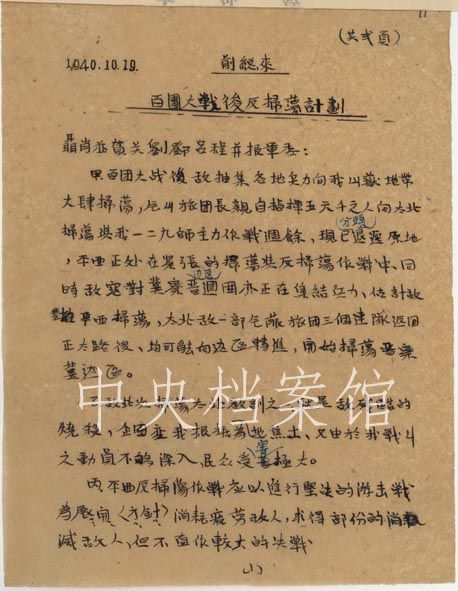 (共弍頁)
1940.10.19. 前総來
百團大戰後反掃蕩計劃
聶肖 賀关劉鄧呂程并报軍委:
甲百团大战後敌抽集各地兵力向我山嶽地帶
大肆掃蕩, 旅团長親自指揮五元千之人向太北
分頭
掃蕩與我一二九師主力作戰週餘, 現已退還原地
, 平西正处在緊張的掃蕩與反掃蕩作戰中, 同
边區
時敌寇對冀察普通囬亦正在集結兵力, 估計敌
平西掃蕩, 太北敌一部 旅团三個連隊返回
正太路後、均可能向边區轉進, 開始掃蕩晋察
冀边區。
乙敌此次掃蕩 教訓之一, 是敌 的
燒殺, 企圖在我根據為地焦土, 又由於我戰斗
之動員不够深入, 民众受害極大。
害
丙、平西反掃蕩作戰应以進行堅決的游击戰
為原則(方針)消耗疲劳敌人, 求得部份的消
滅敌人, 但不宜作較大的决戰
(1)
中央档案馆